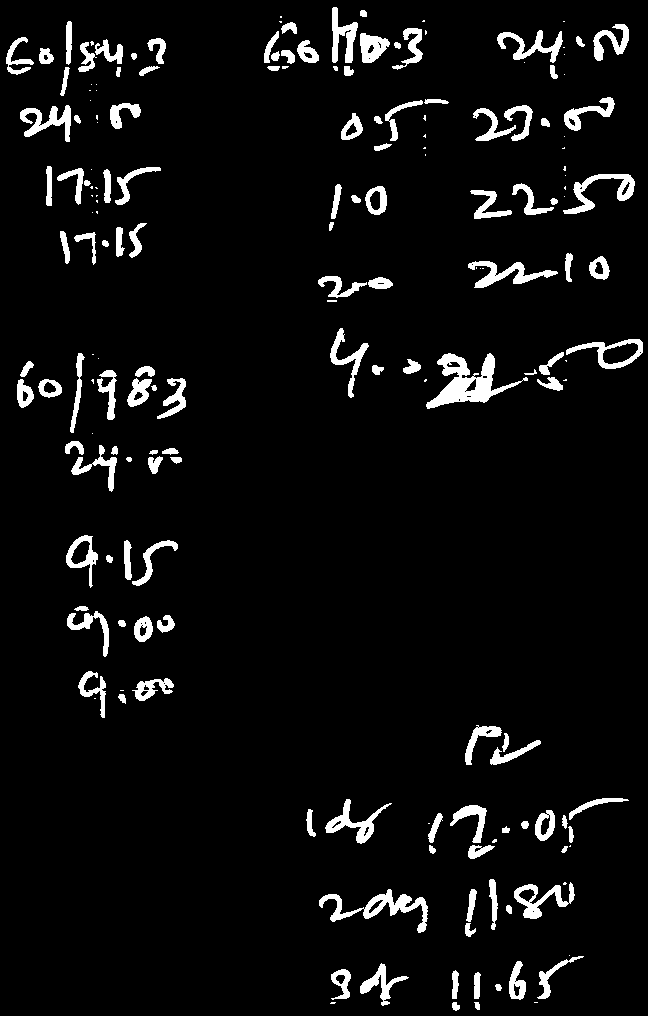 60/54.3
24.00
17.15
17.15
60/98.3
24.00
9.15
9.00
9.00
60/70.3 24.00
0.5 23.00
1.0 22.50
2.0 22.10
4.0 21.50
12.05
2 day 11.80
11.65